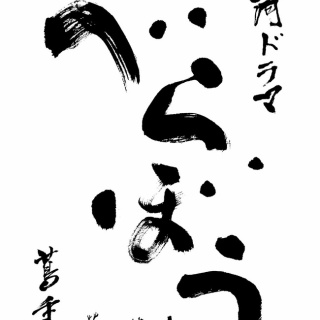 河ドラマ
べらぼう
蔦重